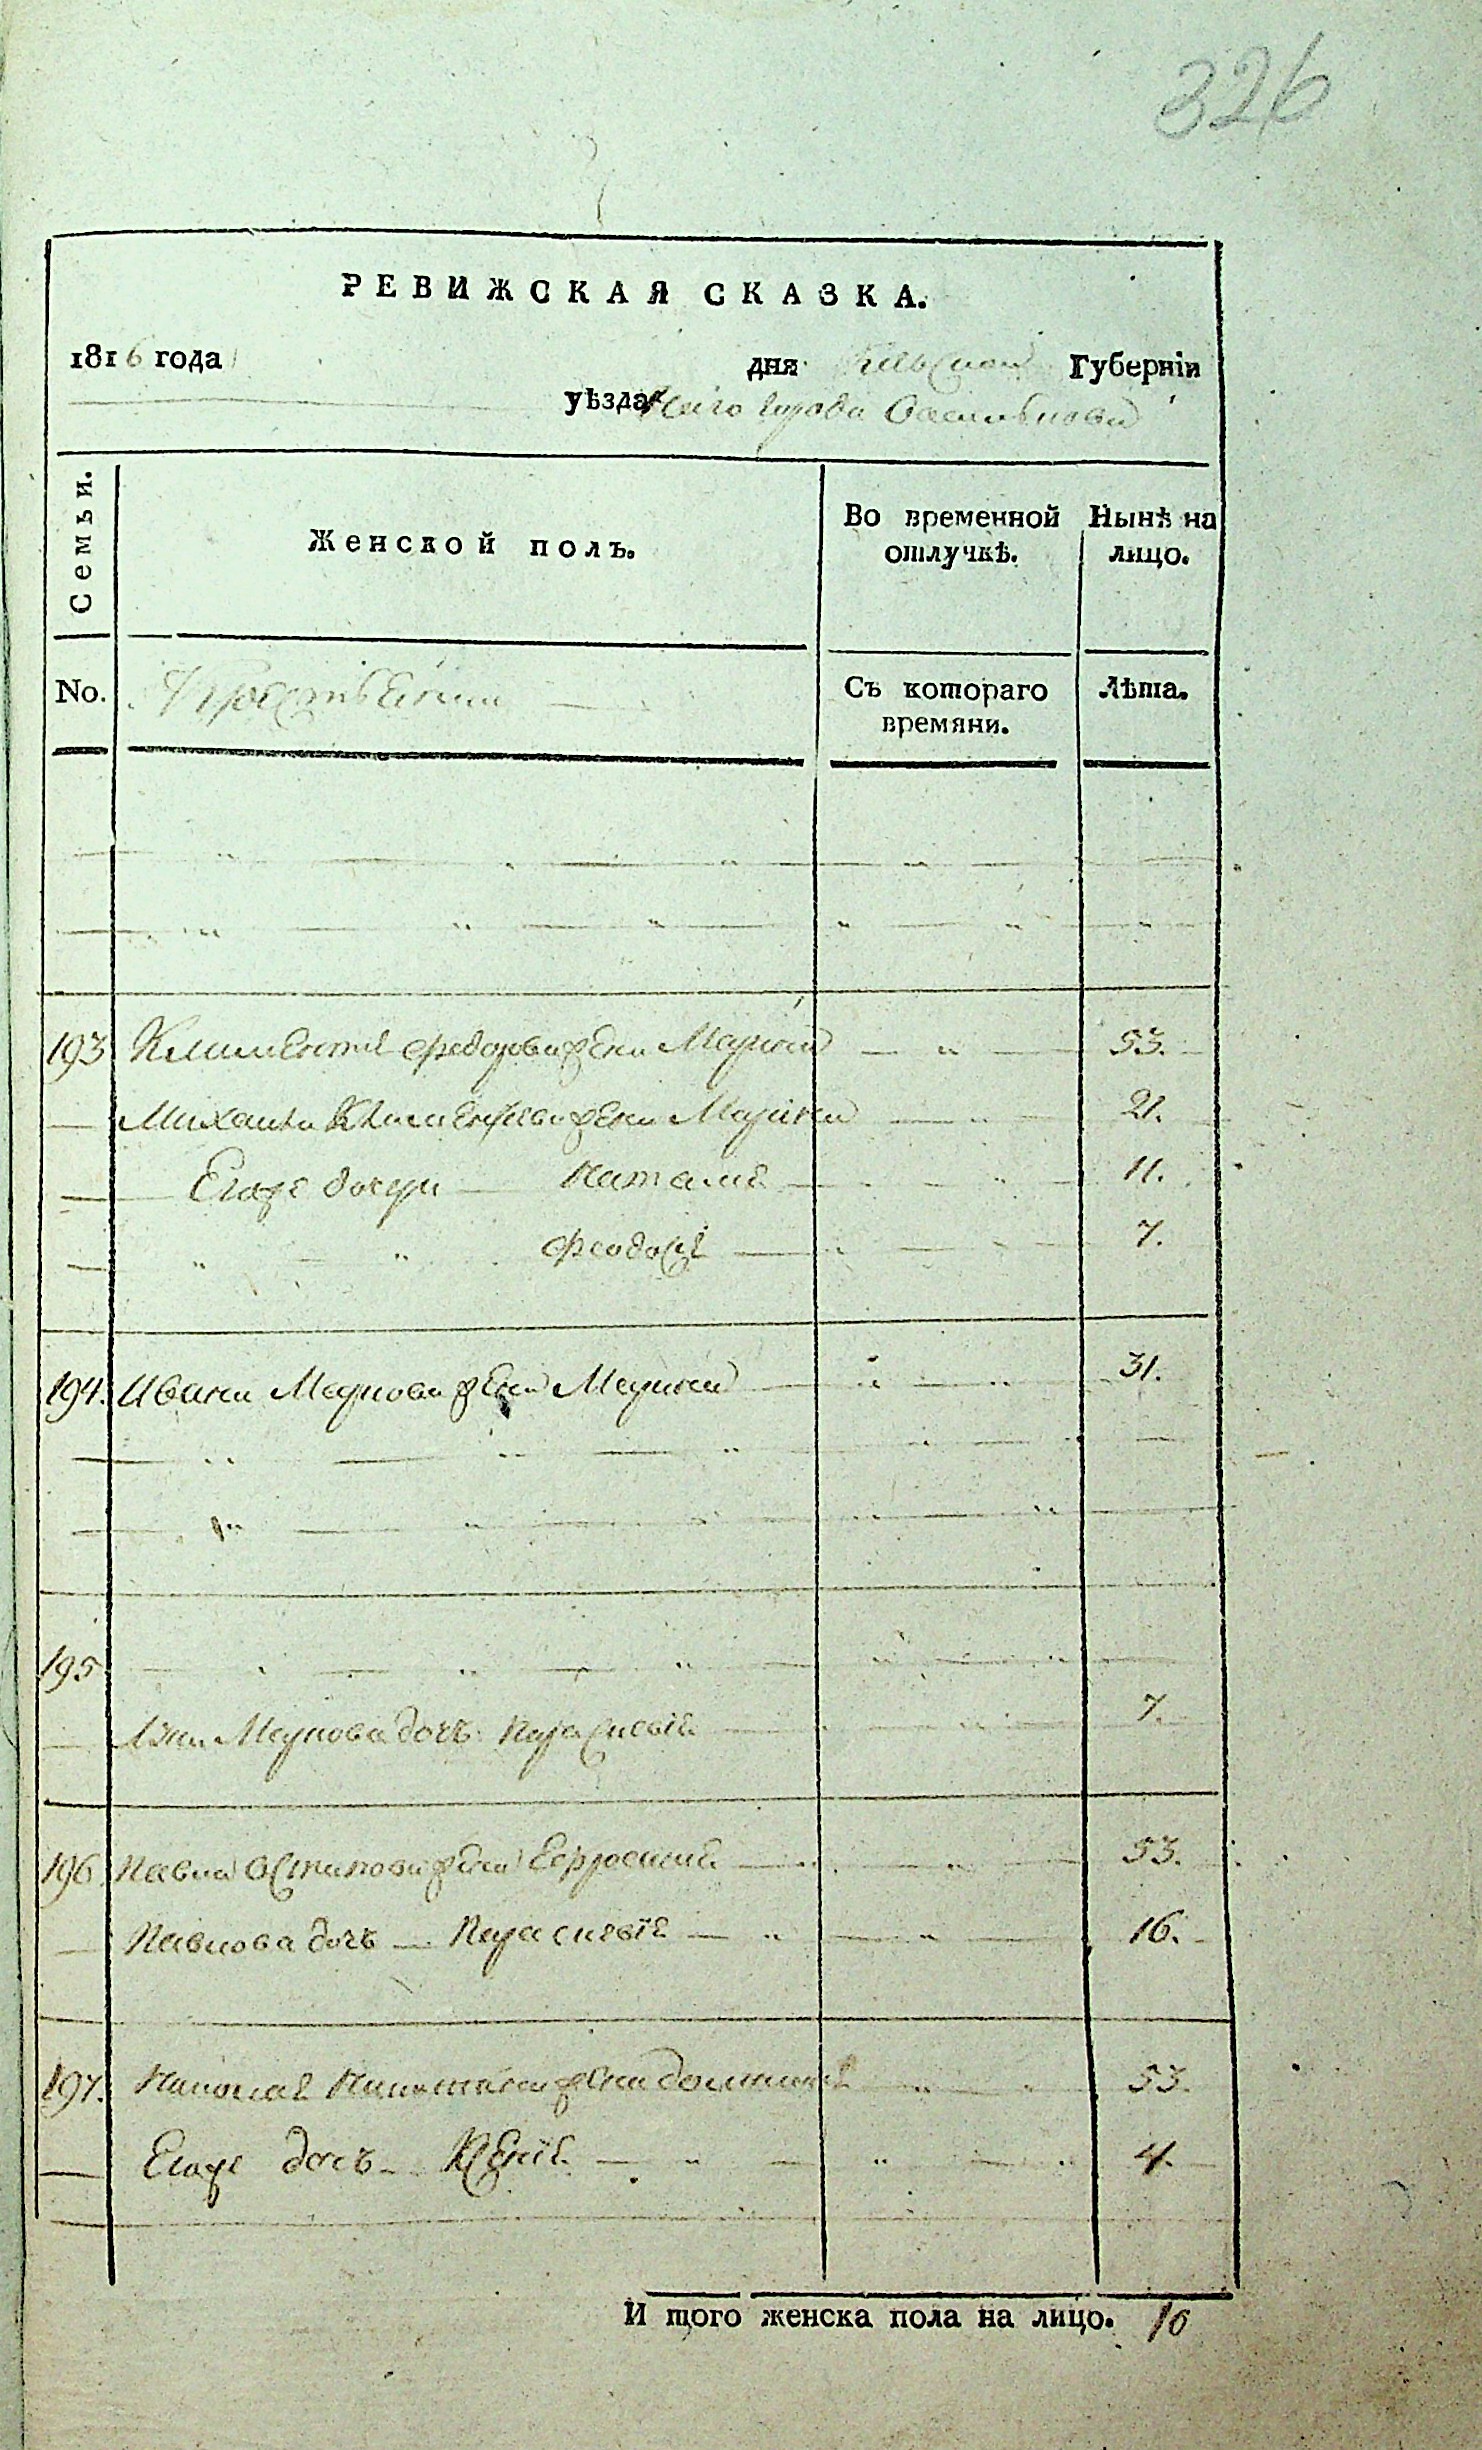 326
РЕВИЖСКАЯ СКАЗКА.
1816 года дня Киевской Губерніи
уѣзда города Василькова
Семьи.
Женской полъ.
Во временной отлучкѣ.
Нынѣ на лицо.
No.
Съ котораго времяни.
Лѣта.
193 Климентія Федорова жена Марина 53.
Михаила Климентіева жена Марина 21.
Егоже дочери Наталія 11.
Феодосія 7.
194. Ивана Маркова жена Марина 31.
195
Маркова дочь Параскевія 7.
196 Павла Остапова жена Евфросинія 53.
Павлова дочь Параскевія 16.
197. Николая жена Домникія 53.
Егоже дочь Ксенія 4.
И того женска пола на лицо. 10